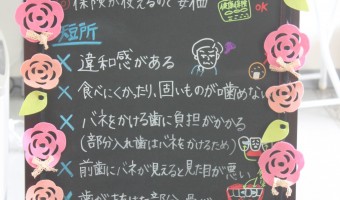 保険が使えるので安価
OK
短所
× 違和感がある
× 食べにくかったり、固いものが噛めない
× バネをかける歯に負担がかかる
(部分入れ歯はバネをかけるため)
× 前歯にバネが見えると見た目が悪い